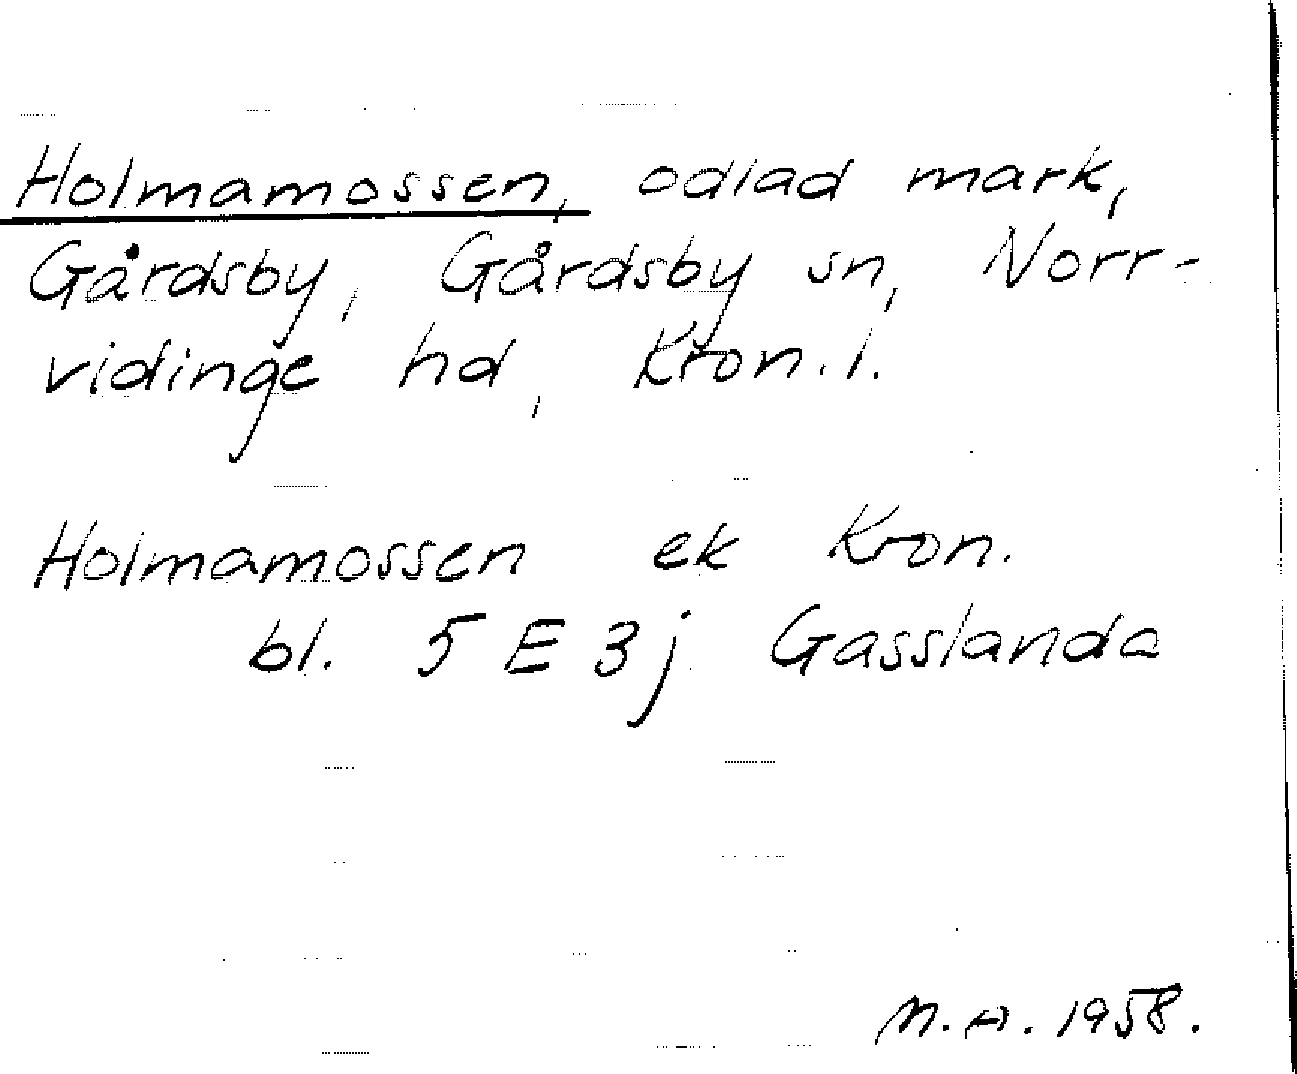 Holmamossen, odlad mark,
Gårdsby, Gårdsby sn, Norr-
vidinge hd, Kron. l.
Holmamossen ek Kron.
bl. 5 E 3j Gasslanda
M.A. 1958.